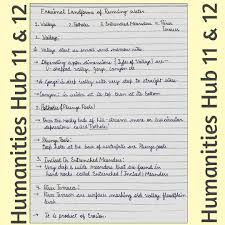 Humanities Hub 11 & 12
Erosional Landforms of Running water
1. Valleys 2. Potholes 3. Entrenched Meanders 4. River Terraces
1. Valleys:
→ Valleys start as small and narrow rills
→ Depending upon dimensions (Types of Valley) are:-
V-shaped valley, Gorge, canyon etc
→ Gorge is deep valley with very steep to straight sides
→ Canyon: is wider at its top than at its bottom
2. Potholes / Plunge Pools:
→ Over the rocky beds of hill-streams more or less circular
depressions called 'Potholes'
→ Plunge Pools:
Deep holes at the base of waterfalls are Plunge Pools.
3. Incised Or Entrenched Meanders:
→ Very deep & wide meanders that are found in
hard rocks called Entrenched / Incised Meanders
4. River Terraces:
→ River Terraces are surfaces marking old valley floodplain
→ It is product of Erosion.
Humanities Hub 11 & 12